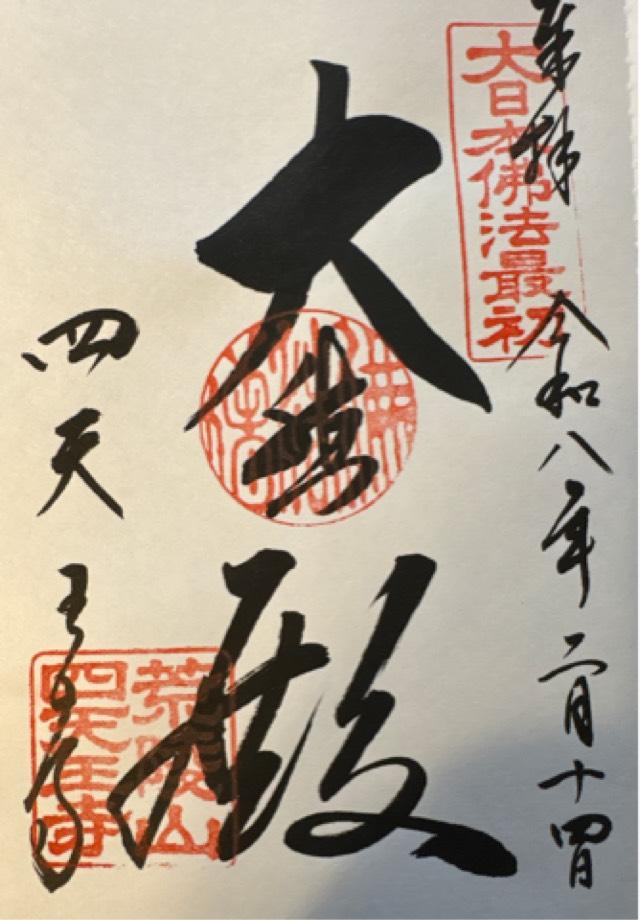 大日本佛法最初
奉拝 令和八年二月十四日
大悲殿
四天王寺
荒陵山
四天王寺